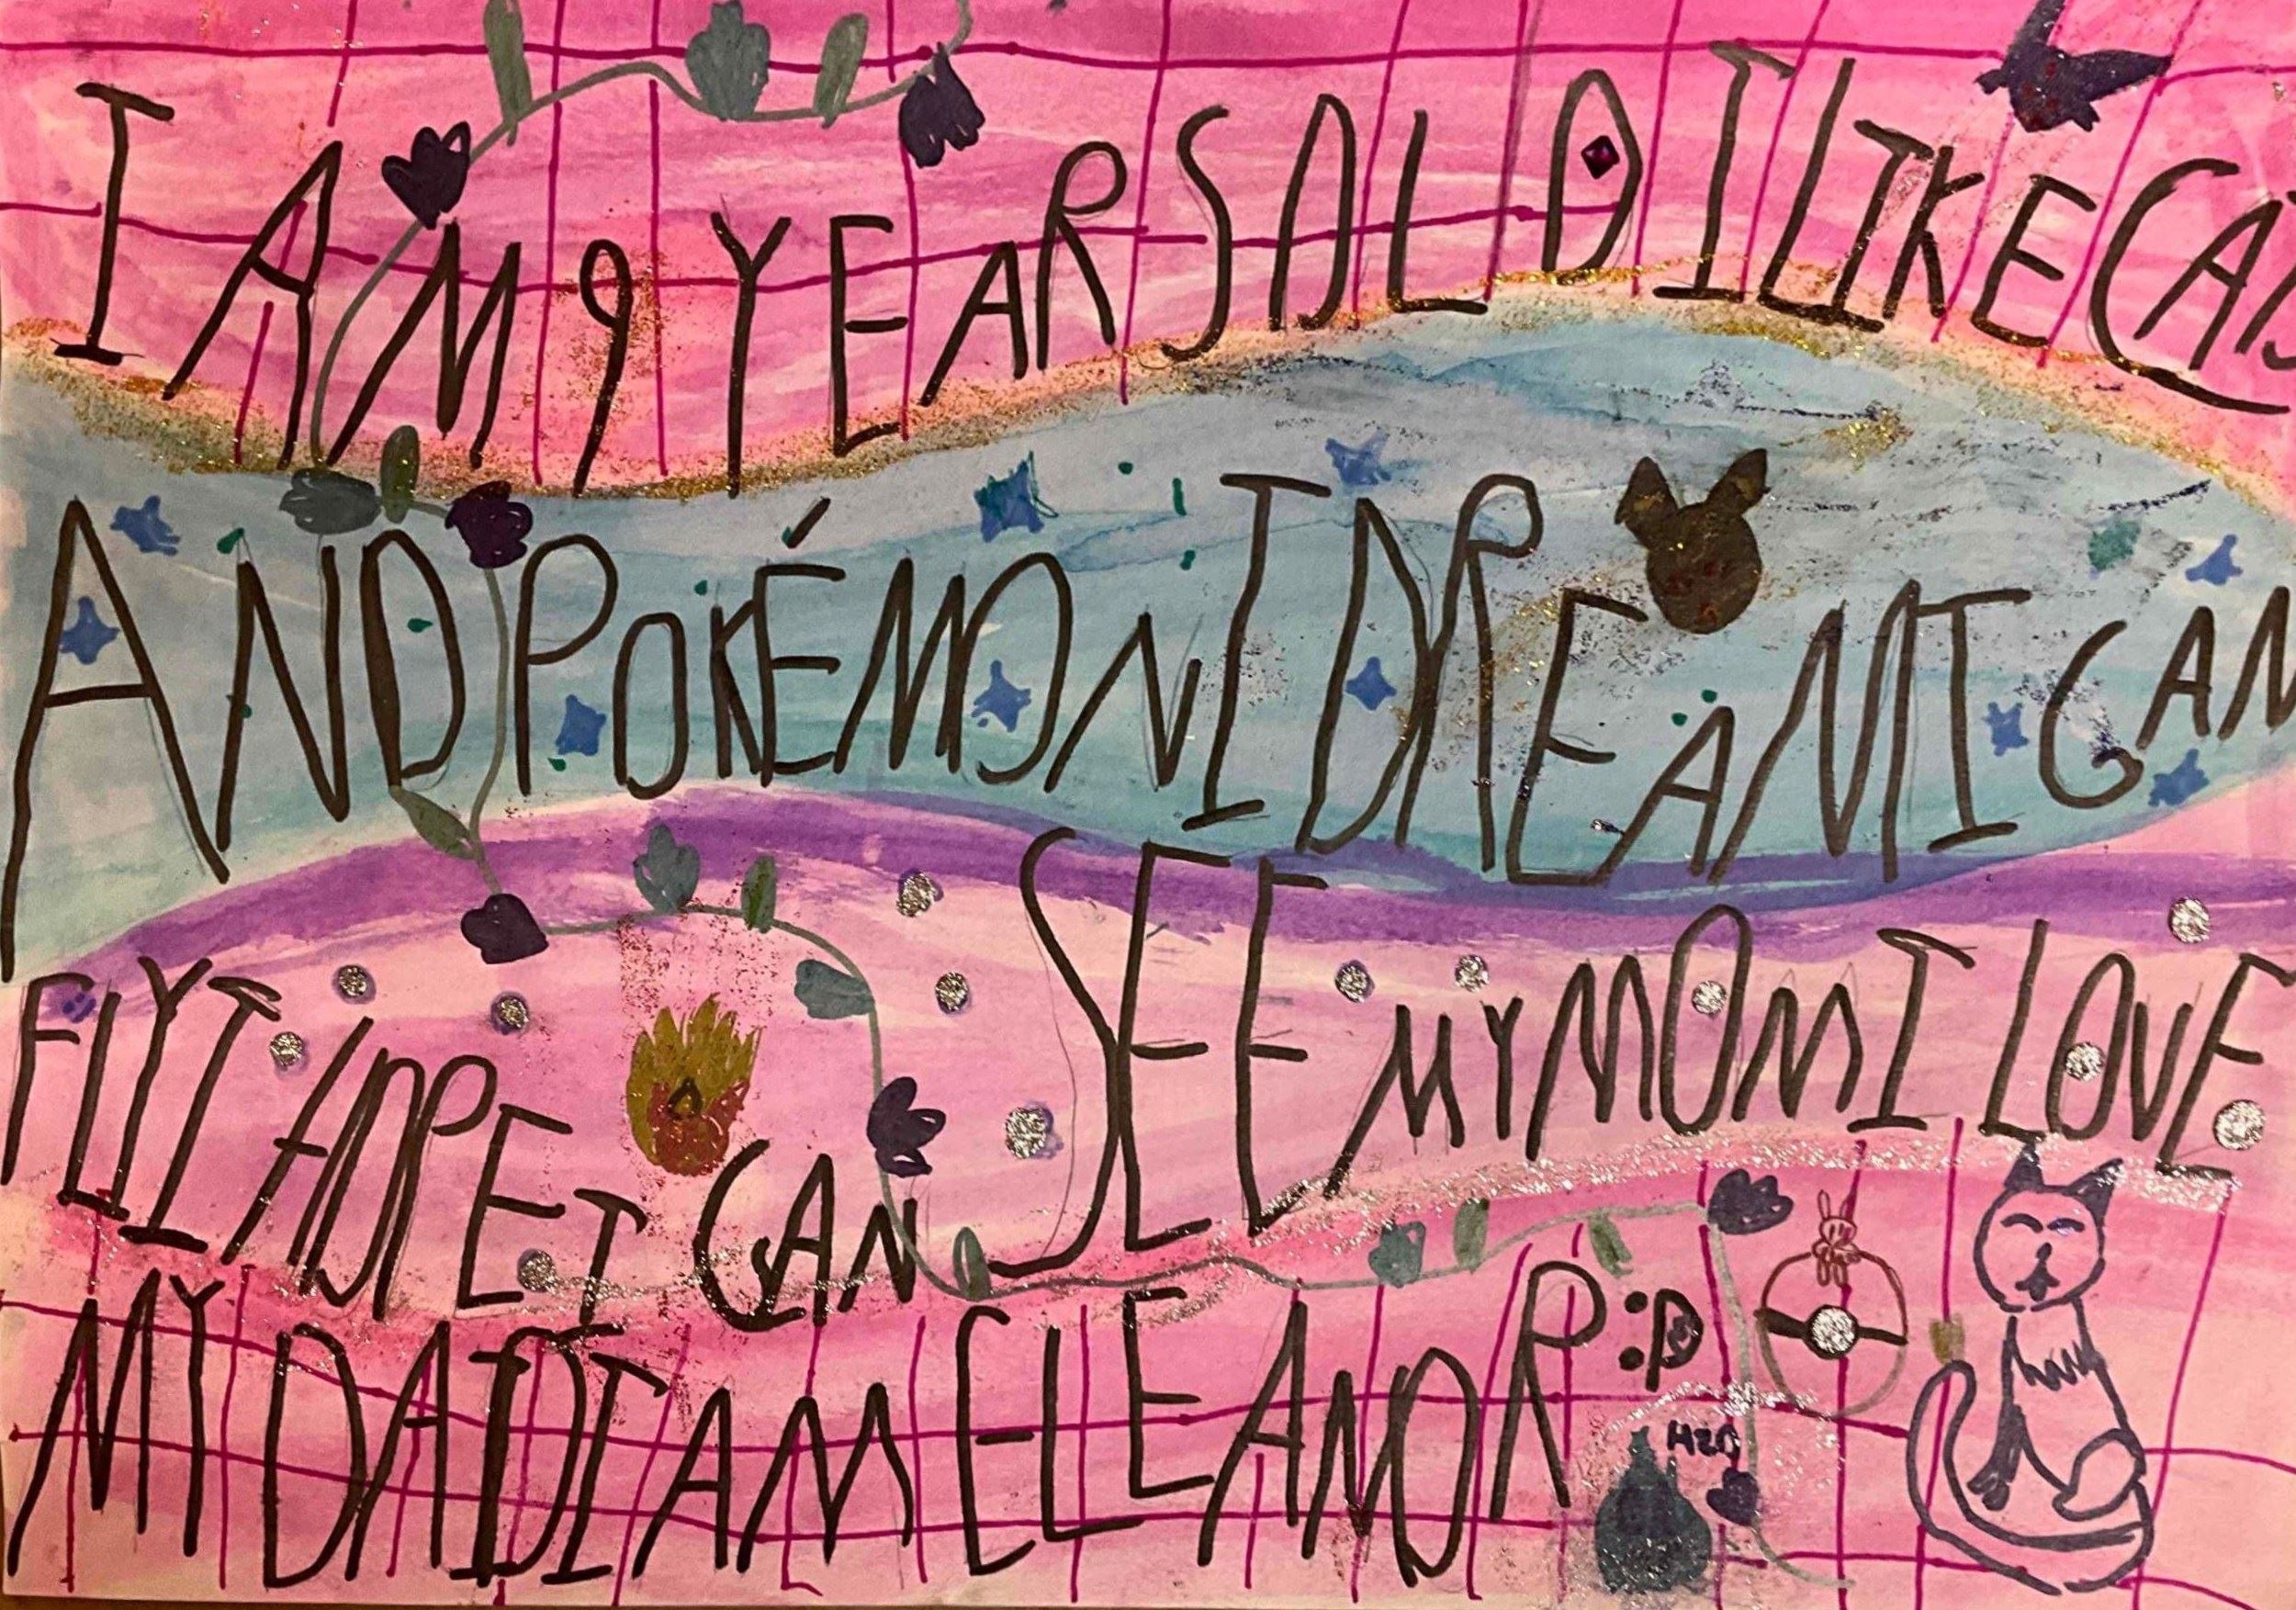 I AM 9 YEARS OLD I LIKE CATS
AND POKÉMON I DREAM I CAN
FLY I HOPE I CAN SEE MY MOM I LOVE
MY DAD I AM ELEANOR :P
H2O